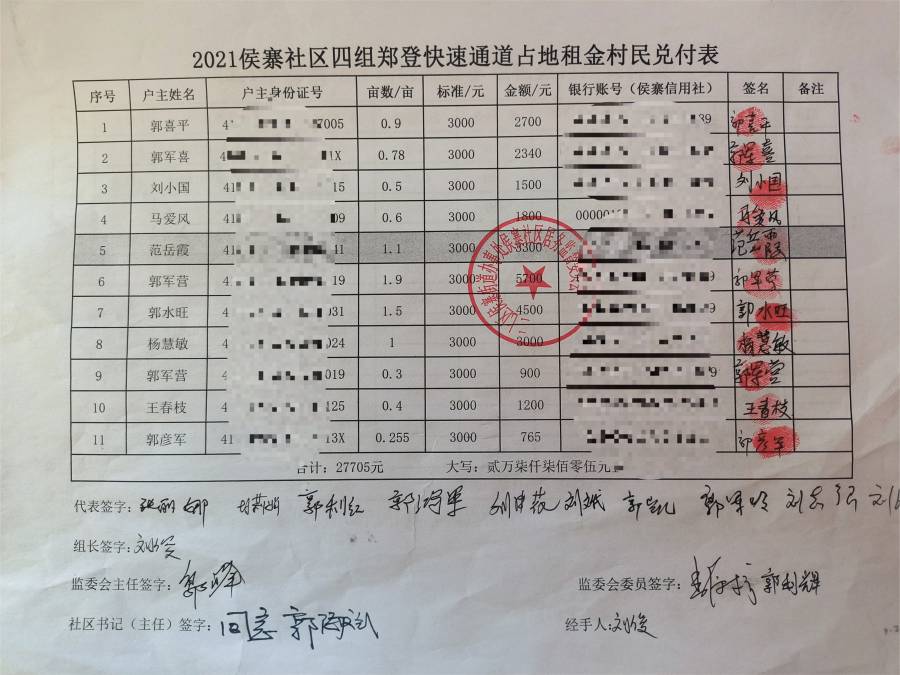 2021侯寨社区四组郑登快速通道占地租金村民兑付表
序号 户主姓名 户主身份证号 亩数/亩 标准/元 金额/元 银行账号（侯寨信用社） 签名 备注
1 郭喜平 4 7005 0.9 3000 2700 39 郭喜平
2 郭军喜 4 1X 0.78 3000 2340 郭军喜
3 刘小国 41 15 0.5 3000 1500 刘小国
4 马爱风 41 09 0.6 3000 1800 00000 马爱风
5 范岳霞 41 11 1.1 3000 3300 范岳霞
6 郭军营 41 19 1.9 3000 5700 9 郭军营
7 郭水旺 41 031 1.5 3000 4500 郭水旺
8 杨慧敏 4 024 1 3000 3000 杨慧敏
9 郭军营 4 019 0.3 3000 900 9 郭军营
10 王春枝 4 125 0.4 3000 1200 王春枝
11 郭彦军 41 13X 0.255 3000 765 郭彦军
合计：27705元 大写：贰万柒仟柒佰零伍元
代表签字： 郭利红 刘斌 郭凯
组长签字：刘俊
监委会主任签字： 监委会委员签字： 郭利辉
社区书记（主任）签字：同意 经手人：刘俊